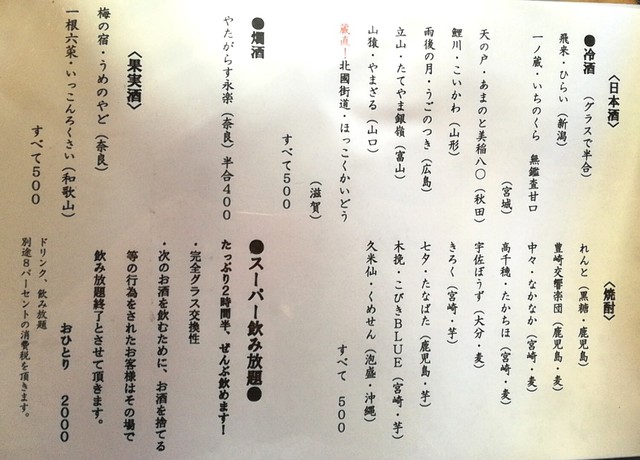 〈日本酒〉
●冷酒　（グラスで半合）
飛来・ひらい（新潟）
一ノ蔵・いちのくら　無鑑査甘口
（宮城）
天の戸・あまのと美稲八〇（秋田）
鯉川・こいかわ（山形）
雨後の月・うごのつき（広島）
立山・たてやま銀嶺（富山）
山猿・やまざる（山口）
蔵直！北國街道・ほっこくかいどう
（滋賀）
すべて５００
●燗酒
やたがらす永楽（奈良）半合４００
〈果実酒〉
梅の宿・うめのやど（奈良）
一根六菜・いっこんろくさい（和歌山）
すべて５００
〈焼酎〉
れんと（黒糖・鹿児島）
豊崎交響楽団（鹿児島・麦）
中々・なかなか（宮崎・麦）
高千穂・たかちほ（宮崎・麦）
宇佐ぼうず（大分・麦）
きろく（宮崎・芋）
七夕・たなばた（鹿児島・芋）
木挽・こびきＢＬＵＥ（宮崎・芋）
久米仙・くめせん（泡盛・沖縄）
すべて　５００
●スーパー飲み放題●
たっぷり２時間半、ぜんぶ飲めます！
・完全グラス交換性
・次のお酒を飲むために、お酒を捨てる
等の行為をされたお客様はその場で
飲み放題終了とさせて頂きます。
おひとり　２０００
ドリンク、飲み放題
別途８パーセントの消費税を頂きます。